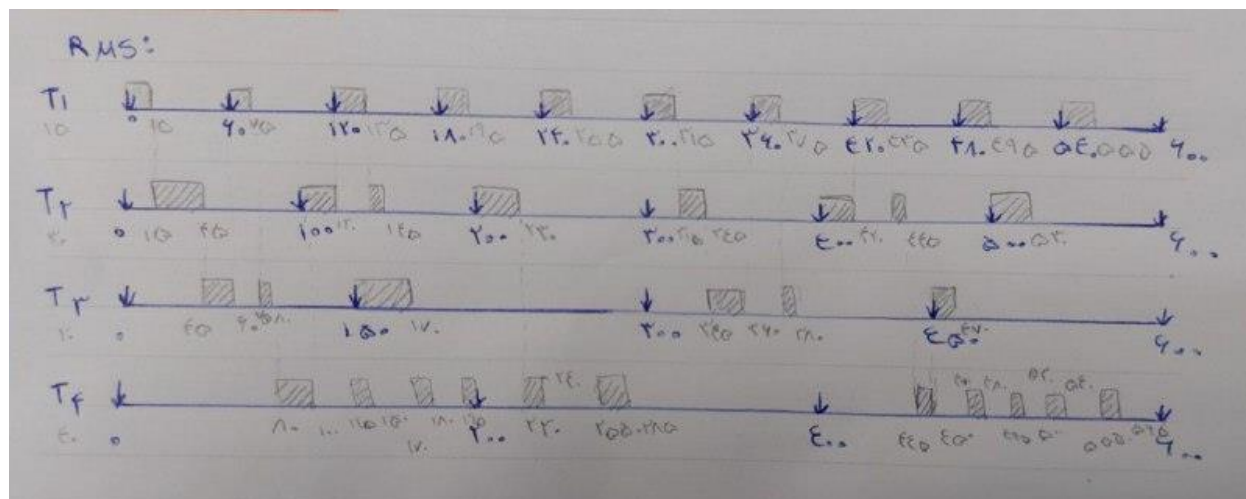 RMS:
T۱ ۱۵
۰ ۱۵ ۶۰ ۷۵ ۱۲۰ ۱۳۵ ۱۸۰ ۱۹۵ ۲۴۰ ۲۵۵ ۳۰۰ ۳۱۵ ۳۶۰ ۳۷۵ ۴۲۰ ۴۳۵ ۴۸۰ ۴۹۵ ۵۴۰ ۵۵۵ ۶۰۰
T۲ ۳۰
۰ ۱۵ ۴۵ ۱۰۰ ۱۲۰ ۱۴۵ ۲۰۰ ۲۳۰ ۳۰۰ ۳۱۵ ۳۴۵ ۴۰۰ ۴۲۰ ۴۴۵ ۵۰۰ ۵۳۰ ۶۰۰
T۳ ۲۰
۰ ۴۵ ۶۰ ۷۵ ۸۰ ۱۵۰ ۱۷۰ ۳۰۰ ۳۴۵ ۳۶۰ ۳۸۰ ۴۵۰ ۴۷۰ ۶۰۰
T۴ ۴۰
۲۴۰ ۴۷۰ ۴۸۰ ۵۳۰ ۵۴۰
۰ ۸۰ ۱۰۰ ۱۴۵ ۱۵۰ ۱۷۰ ۱۸۰ ۱۹۵ ۲۰۰ ۲۳۰ ۲۵۵ ۲۸۵ ۴۰۰ ۴۴۵ ۴۵۰ ۴۹۵ ۵۰۰ ۵۵۵ ۶۰۰